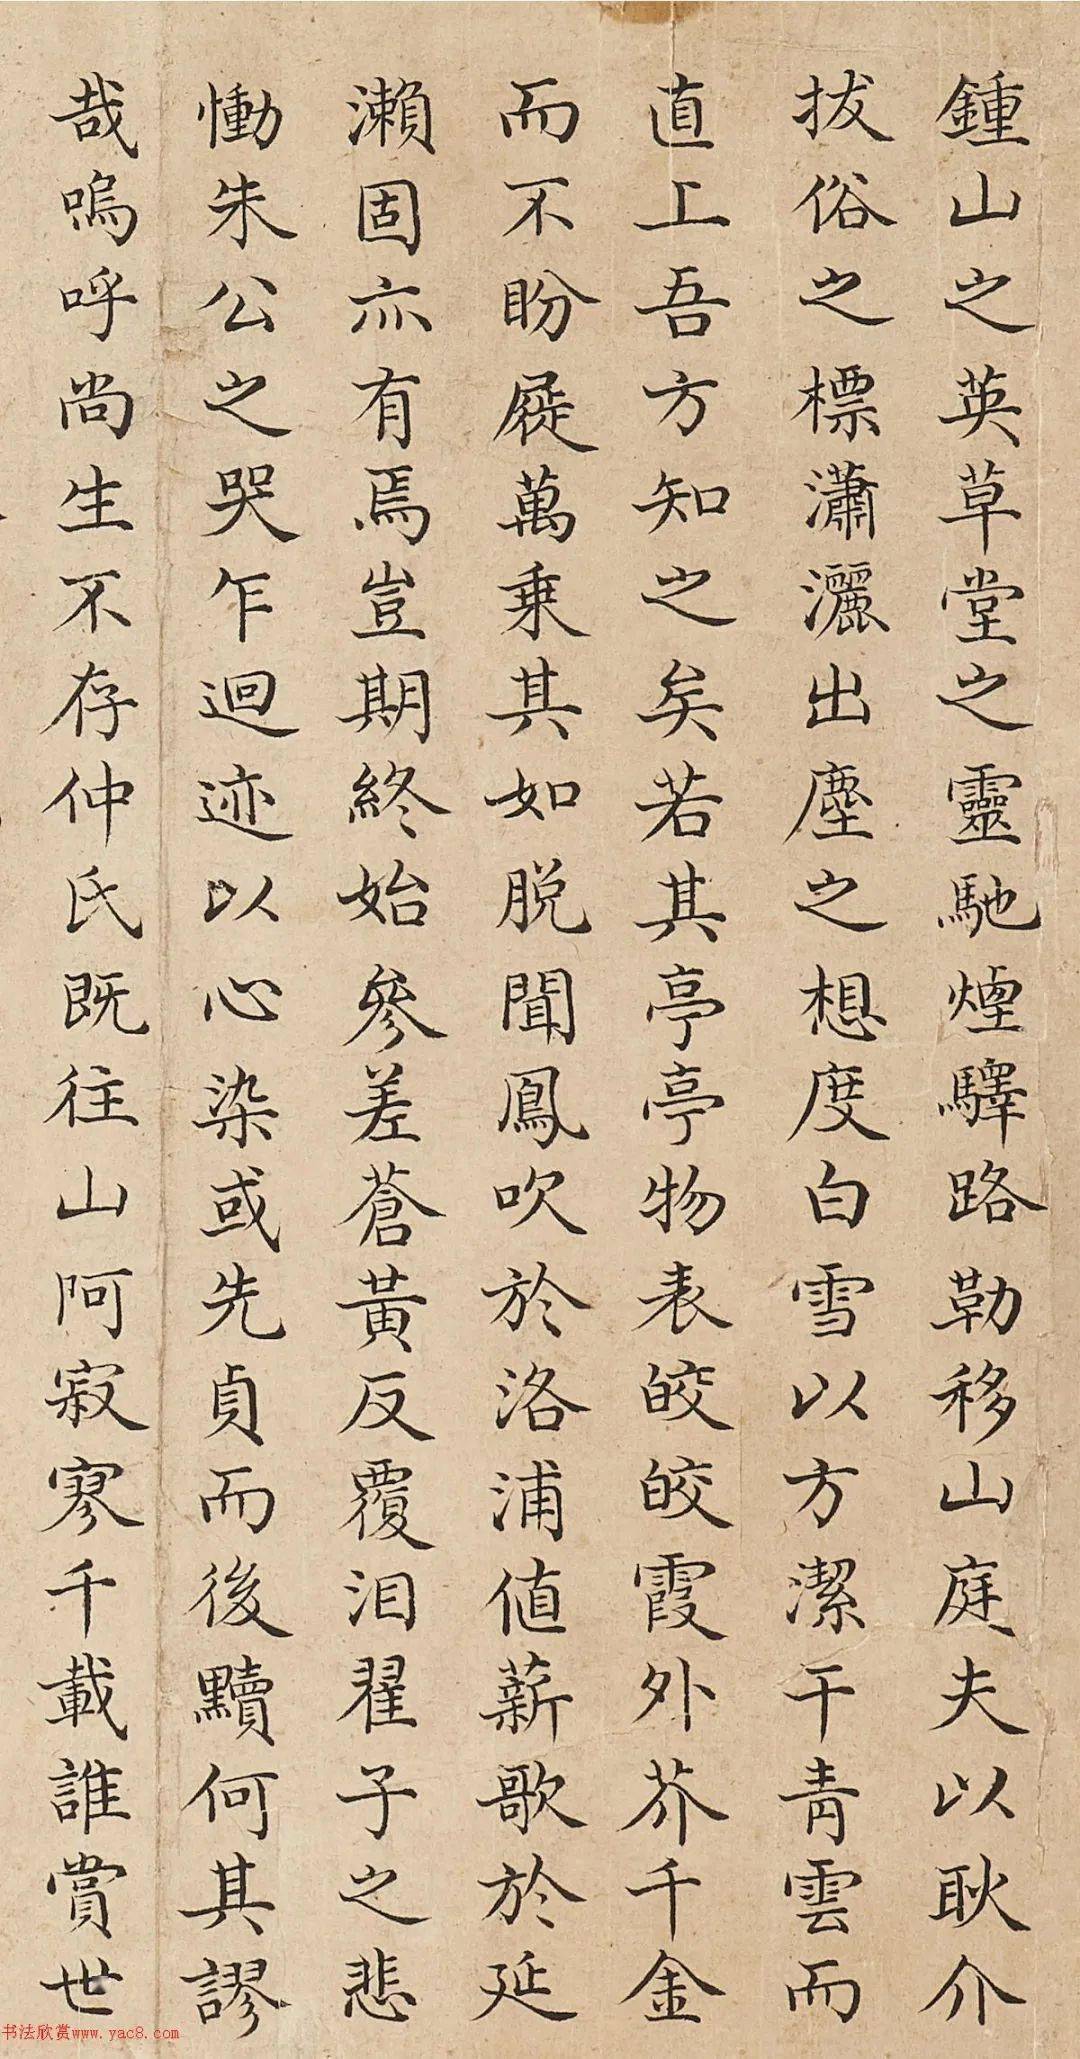 鍾山之英草堂之靈馳煙驛路勒移山庭夫以耿介
拔俗之標瀟灑出塵之想度白雪以方潔干青雲而
直上吾方知之矣若其亭亭物表皎皎霞外芥千金
而不盼屣萬乗其如脱聞鳳吹於洛浦値薪歌於延
瀨固亦有焉豈期終始參差蒼黃反覆泪翟子之悲
慟朱公之哭乍迴迹以心染或先貞而後黷何其謬
哉嗚呼尚生不存仲氏既往山阿寂寥千載誰賞世
书法欣赏www.yac8.com